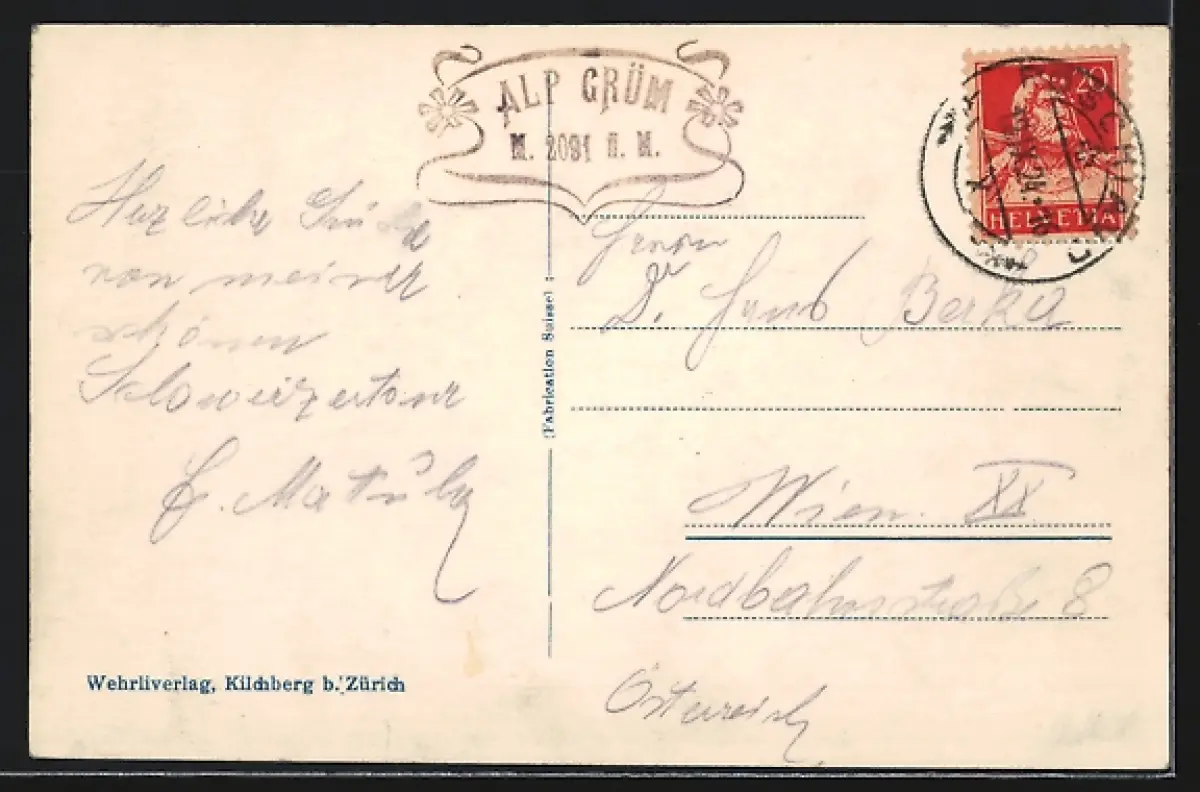 ALP GRÜM
M. 2091 Ü. M.
20
HELVETIA
Herzliche Grüße
von meiner
schönen
Schweizertour
Herrn
Dr. Hans Berka
Wien XX
Nordbahnstraße 8
Österreich
(Fabrication Suisse)
Wehrliverlag, Kilchberg b. Zürich